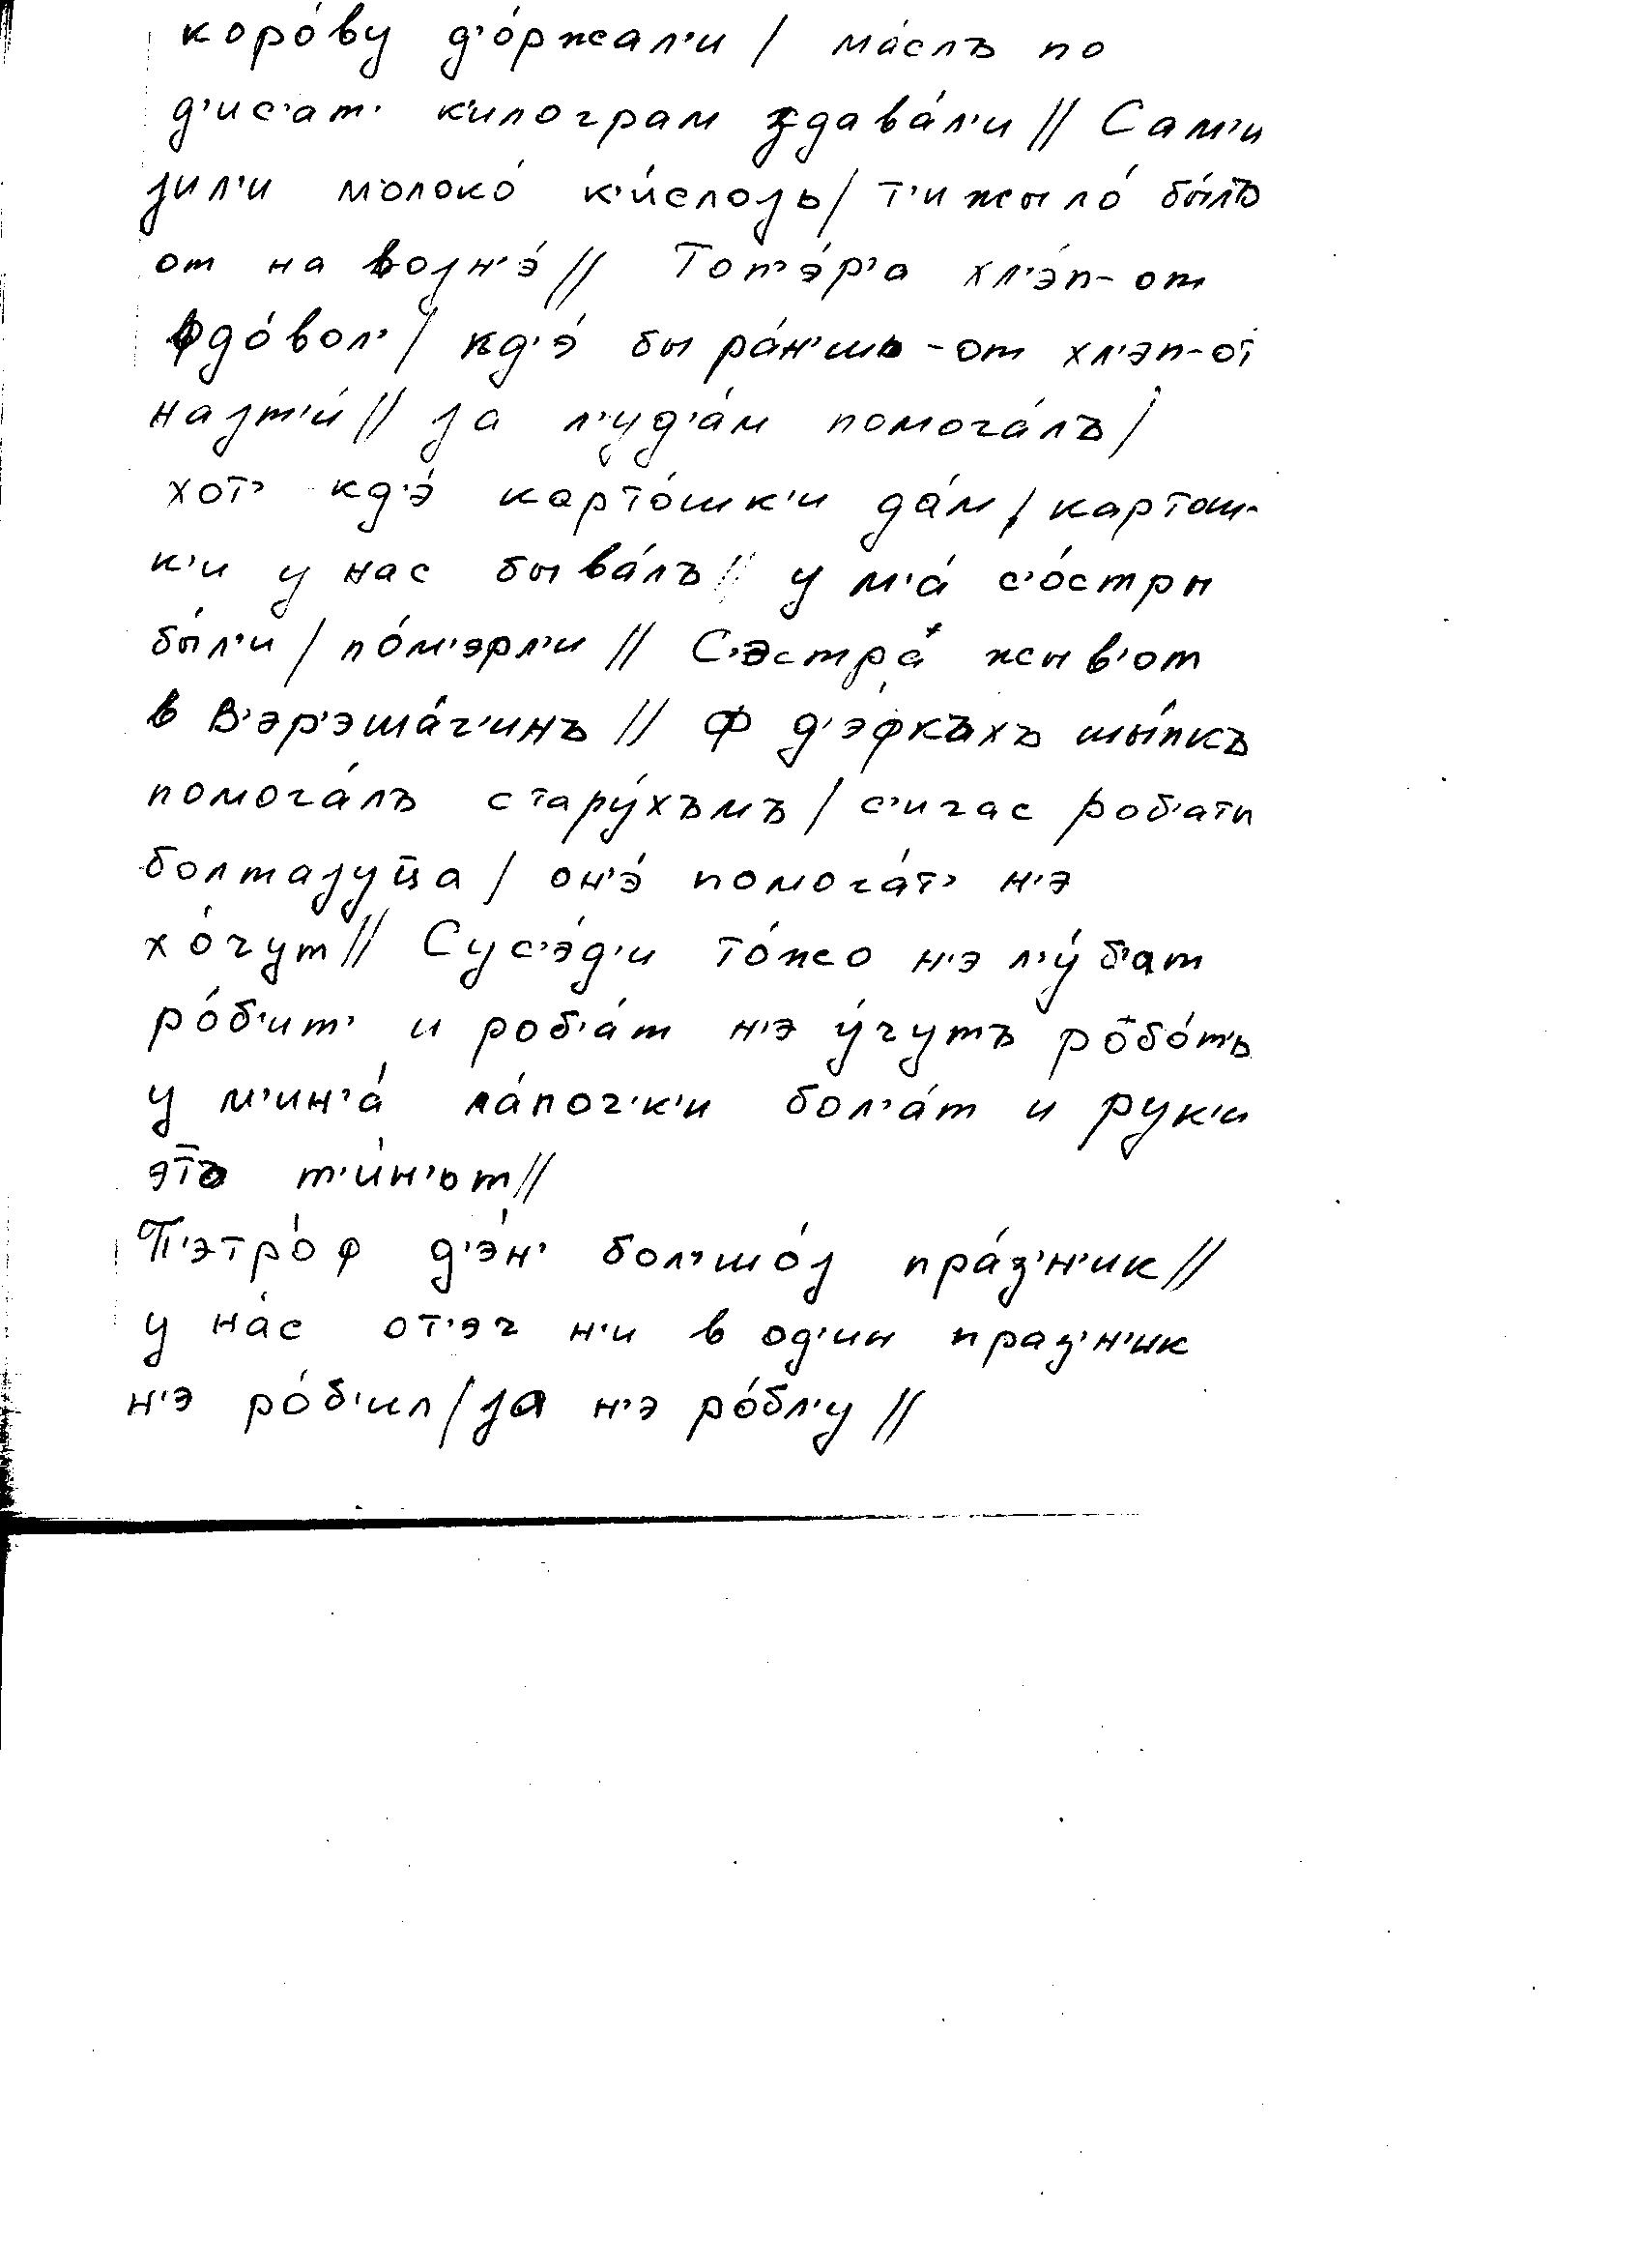 коро́ву д'о́ржал'и / ма́слъ по
д'ис'ат' к'илограм здава́л'и // Сам'и
jил'и молоко́ к'и́слоjь / т'ижыло́ бы́лъ
от на воjн'э́ // Топ'э́р'а хл'э́п-от
вдо́вол' / кд'э́ бы ра́н'шь-от хл'эп-от
наjт'и́ // jа л'уд'а́м помога́лъ /
хот' кд'э́ карто́шк'и да́м / картош-
к'и у нас быва́лъ // у м'а́ с'о́стры
бы́л'и / по́м'эрл'и // С'эстра́ жыв'от
в В'эр'эша́г'инъ // Ф д'э́фкъхъ шы́пкъ
помога́лъ стару́хъмъ / с'ичас роб'аты
болтаjуц̄а / он'э́ помога́т' н'э
хо́чут // Сус'э́д'и то́жо н'э л'у́б'ат
ро́б'ит' и роб'а́т н'э у́чутъ робо́т'ь
у м'ин'а́ ла́поч'к'и бол'а́т и рук'и
этъ т'и́н'ьт //
П'этро́ф д'э́н' бол'шо́j пра́з'н'ик //
у на́с от'эч н'и в од'ин праз'н'ик
н'э ро́б'ил / jа н'э ро́бл'у //